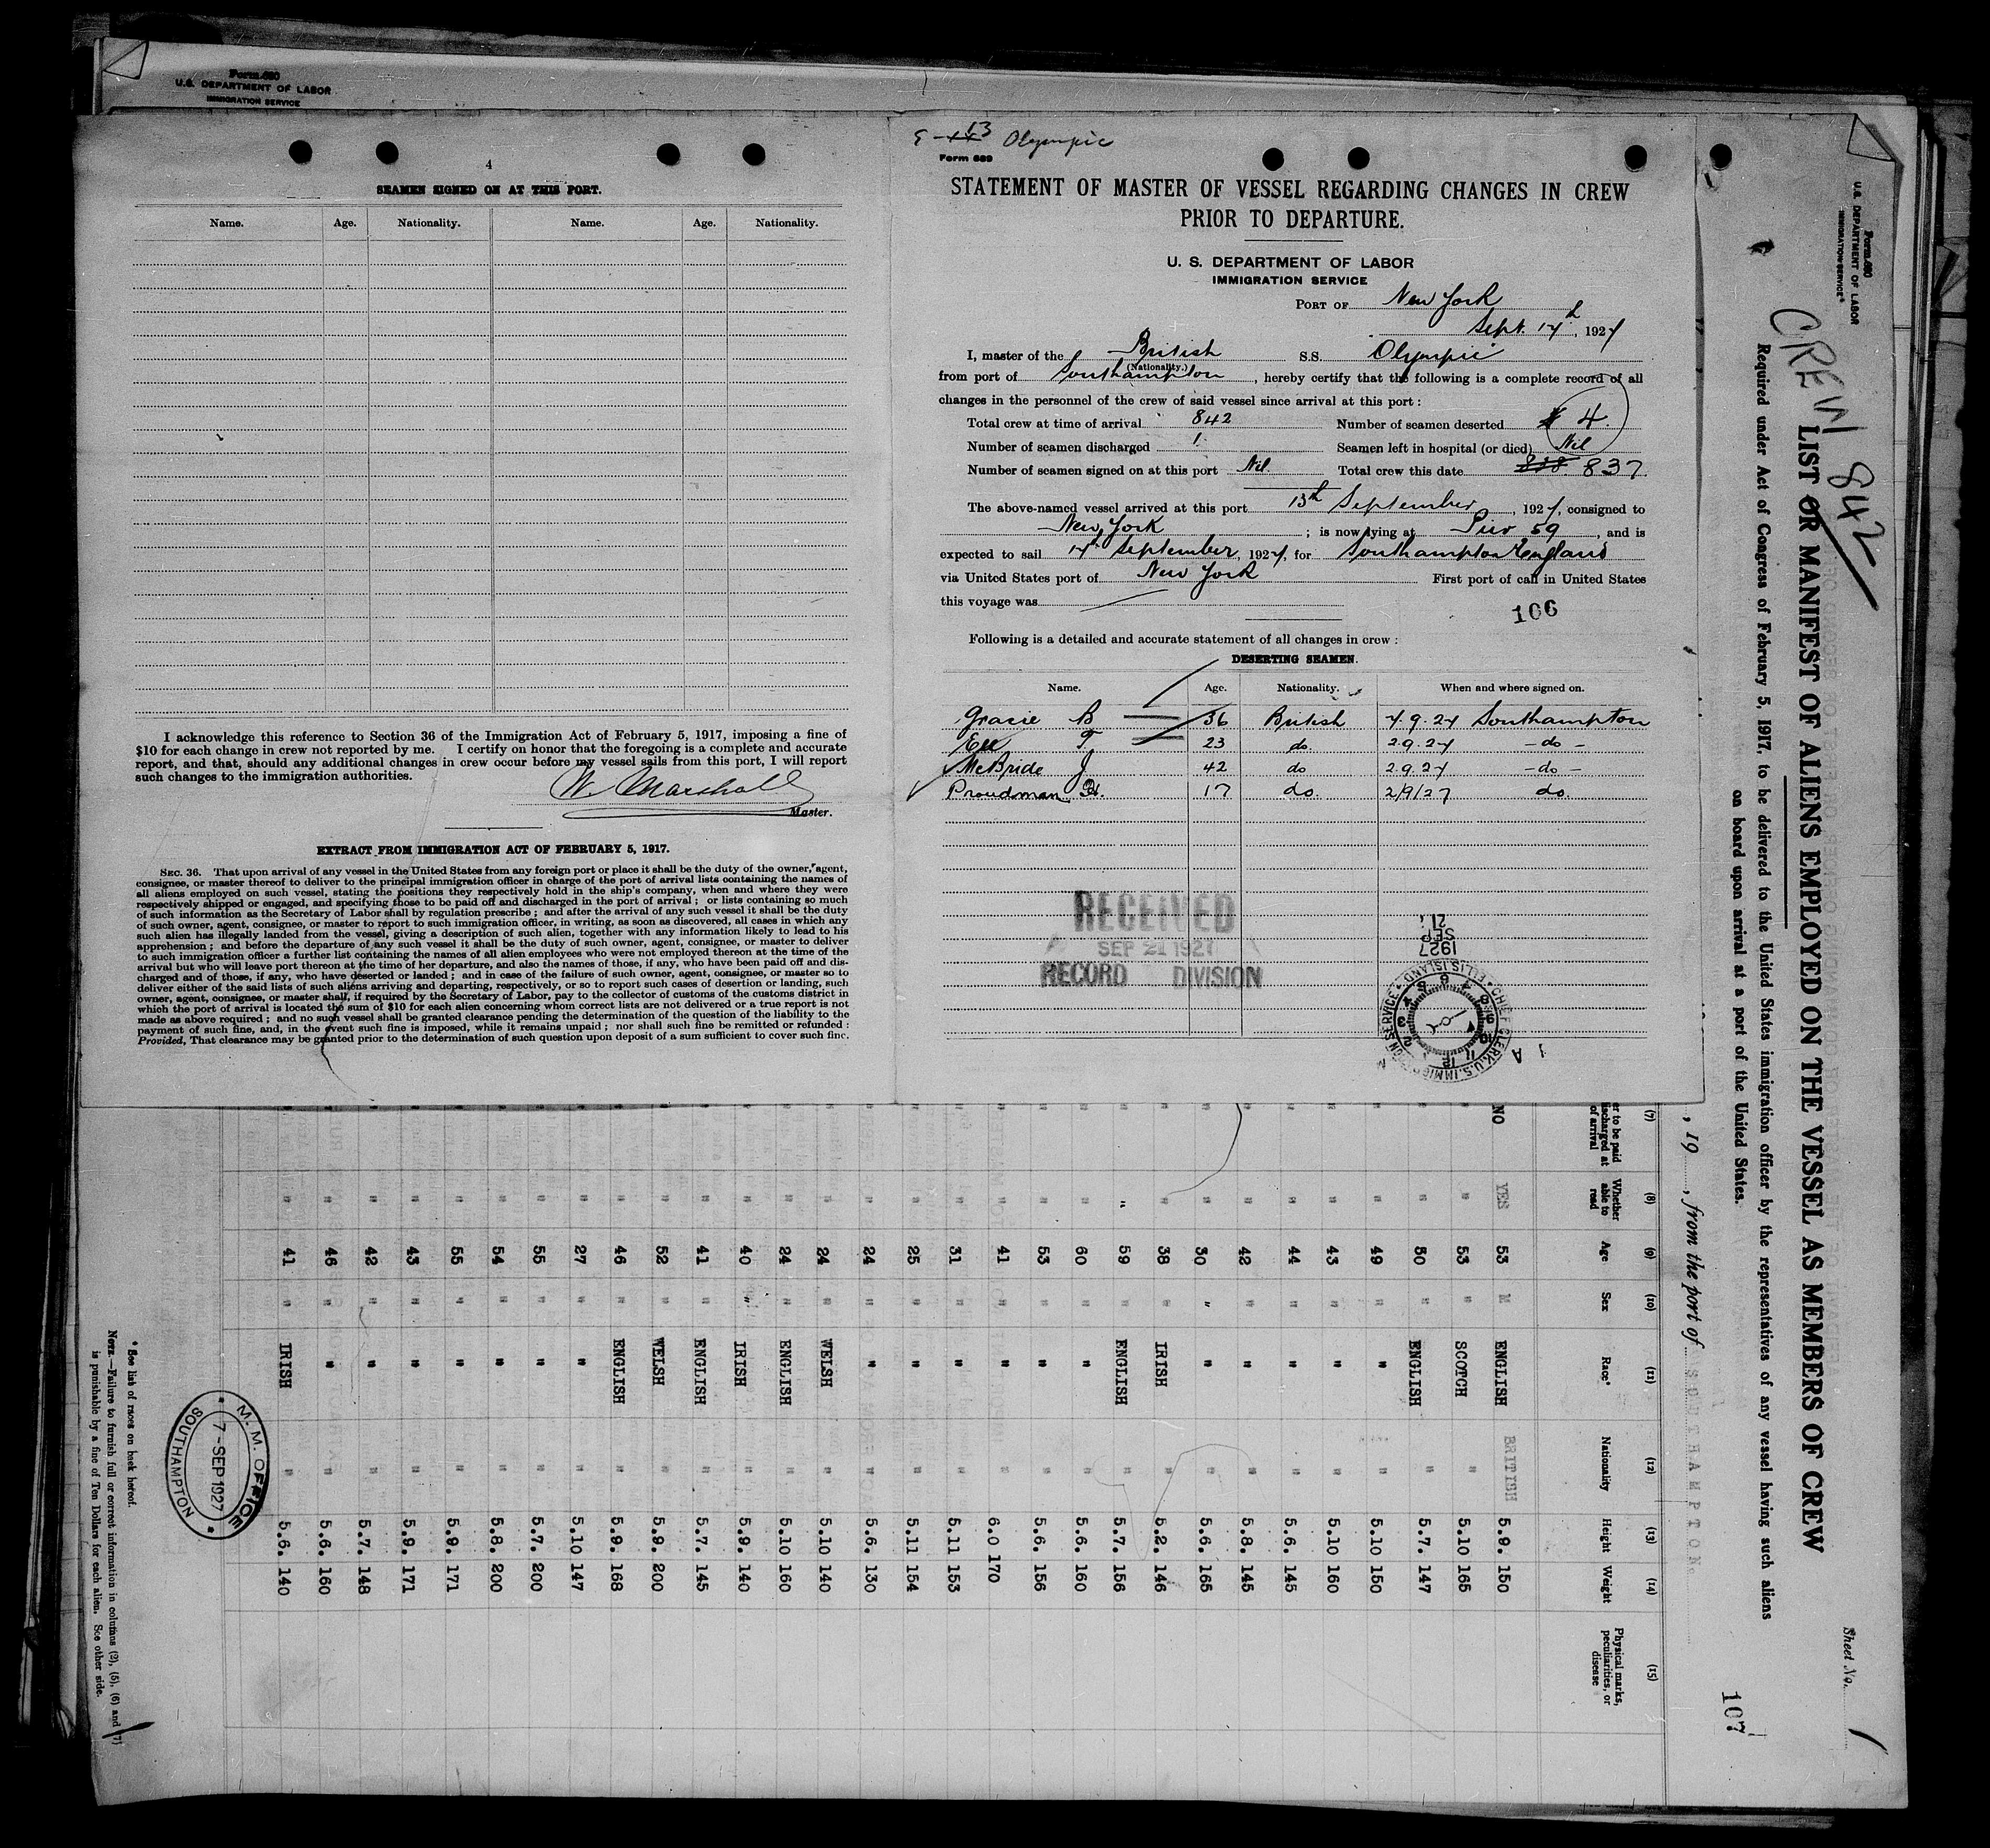 Form 680
U.S. DEPARTMENT OF LABOR
IMMIGRATION SERVICE
4
SEAMEN SIGNED ON AT THIS PORT.
Name. Age. Nationality. Name. Age. Nationality.
I acknowledge this reference to Section 36 of the Immigration Act of February 5, 1917, imposing a fine of
$10 for each change in crew not reported by me. I certify on honor that the foregoing is a complete and accurate
report, and that, should any additional changes in crew occur before my vessel sails from this port, I will report
such changes to the immigration authorities.
W. Marshall
Master.
EXTRACT FROM IMMIGRATION ACT OF FEBRUARY 5, 1917.
SEC. 36. That upon arrival of any vessel in the United States from any foreign port or place it shall be the duty of the owner, agent,
consignee, or master thereof to deliver to the principal immigration officer in charge of the port of arrival lists containing the names of
all aliens employed on such vessel, stating the positions they respectively hold in the ship's company, when and where they were
respectively shipped or engaged, and specifying those to be paid off and discharged in the port of arrival; or lists containing so much
of such information as the Secretary of Labor shall by regulation prescribe; and after the arrival of any such vessel it shall be the duty
of such owner, agent, consignee, or master to report to such immigration officer, in writing, as soon as discovered, all cases in which any
such alien has illegally landed from the vessel, giving a description of such alien, together with any information likely to lead to his
apprehension; and before the departure of any such vessel it shall be the duty of such owner, agent, consignee, or master to deliver
to such immigration officer a further list containing the names of all alien employees who were not employed thereon at the time of the
arrival but who will leave port thereon at the time of her departure, and also the names of those, if any, who have been paid off and dis-
charged and of those, if any, who have deserted or landed; and in case of the failure of such owner, agent, consignee, or master so to
deliver either of the said lists of such aliens arriving and departing, respectively, or so to report such cases of desertion or landing, such
owner, agent, consignee, or master shall, if required by the Secretary of Labor, pay to the collector of customs of the customs district in
which the port of arrival is located the sum of $10 for each alien concerning whom correct lists are not delivered or a true report is not
made as above required; and no such vessel shall be granted clearance pending the determination of the question of the liability to the
payment of such fine, and, in the event such fine is imposed, while it remains unpaid; nor shall such fine be remitted or refunded:
Provided, That clearance may be granted prior to the determination of such question upon deposit of a sum sufficient to cover such fine.
13 Olympic
Form 689
STATEMENT OF MASTER OF VESSEL REGARDING CHANGES IN CREW
PRIOR TO DEPARTURE.
U. S. DEPARTMENT OF LABOR
IMMIGRATION SERVICE
PORT OF New York
Sept. 17th, 1927
I, master of the British S.S. Olympic
(Nationality.)
from port of Southampton, hereby certify that the following is a complete record of all
changes in the personnel of the crew of said vessel since arrival at this port:
Total crew at time of arrival 842 Number of seamen deserted 4
Number of seamen discharged 1 Seamen left in hospital (or died) Nil
Number of seamen signed on at this port Nil Total crew this date 838 837
The above-named vessel arrived at this port 13th September, 1927, consigned to
New York; is now lying at Pier 59, and is
expected to sail 17th September, 1927, for Southampton England
via United States port of New York First port of call in United States
this voyage was
106
Following is a detailed and accurate statement of all changes in crew:
DESERTING SEAMEN.
Name. Age. Nationality. When and where signed on.
Gracie B 36 British 7.9.27 Southampton
T 23 do. 2.9.27 - do -
McBride J 42 do 2.9.27 - do -
Proudman H. 17 do. 2/9/27 do.
RECEIVED
SEP 21 1927
RECORD DIVISION
21
SEP
1927
CHIEF CLERK, U.S. IMMIGRATION SERVICE ELLIS ISLAND
Form 680
U.S. DEPARTMENT OF LABOR
IMMIGRATION SERVICE
Sheet No. 1
CREW 842
LIST OR MANIFEST OF ALIENS EMPLOYED ON THE VESSEL AS MEMBERS OF CREW
Required under Act of Congress of February 5, 1917, to be delivered to the United States immigration officer by the representatives of any vessel having such aliens
on board upon arrival at a port of the United States.
107
, 19 , from the port of SOUTHAMPTON.
(7) (8) (9) (10) (11) (12) (13) (14) (15)
er to be paid discharged at of arrival Whether able to read Age Sex Race* Nationality Height Weight Physical marks, peculiarities, or disease
NO YES 53 M ENGLISH BRITISH 5.9. 150
" 53 " SCOTCH " 5.10 165
" 50 " ENGLISH " 5.7. 147
" 49 " " " 5.10 150
" 43 " " " 5.10 160
" 44 " " " 5.6. 145
" 42 " " " 5.8. 145
" 30 " " " 5.6. 165
" 38 " IRISH " 5.2. 146
" 59 " ENGLISH " 5.7. 156
" 60 " " " 5.6. 160
" 53 " " " 5.6. 156
" 41 " " " 6.0 170
" 31 " " " 5.11 153
" 25 " " " 5.11 154
" 24 " " " 5.6. 130
" 24 " WELSH " 5.10 140
" 24 " ENGLISH " 5.10 160
" 40 " IRISH " 5.9. 140
" 41 " ENGLISH " 5.7. 145
" 52 " WELSH " 5.9. 200
" 46 " ENGLISH " 5.9. 168
" 27 " " " 5.10 147
" 55 " " " 5.7. 200
" 54 " " " 5.8. 200
" 55 " " " 5.9. 171
" 43 " " " 5.9. 171
" 42 " " " 5.7. 148
" 46 " " " 5.6. 160
" 41 " IRISH " 5.6. 140
M.M. OFFICE
7-SEP 1927
SOUTHAMPTON
* See list of races on back hereof.
NOTE.—Failure to furnish full or correct information in columns (2), (5), (6) and (7)
is punishable by a fine of Ten Dollars for each alien. See other side.